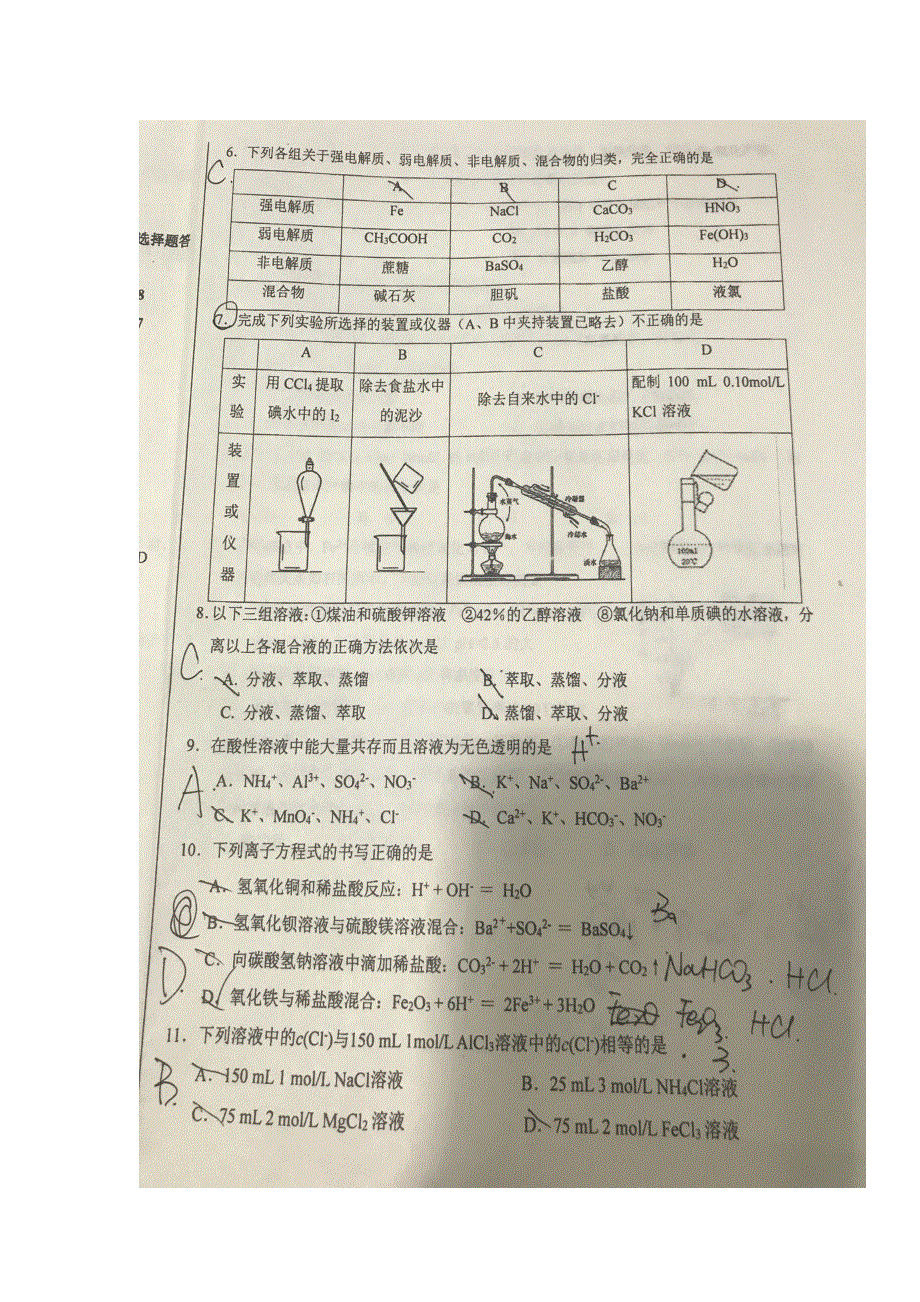 6．下列各组关于强电解质、弱电解质、非电解质、混合物的归类，完全正确的是
C.
A B C D
强电解质 Fe NaCl CaCO₃ HNO₃
选择题答
弱电解质 CH₃COOH CO₂ H₂CO₃ Fe(OH)₃
非电解质 蔗糖 BaSO₄ 乙醇 H₂O
8
混合物 碱石灰 胆矾 盐酸 液氯
7
7．完成下列实验所选择的装置或仪器（A、B 中夹持装置已略去）不正确的是
A B C D
实验 用 CCl₄ 提取碘水中的 I₂ 除去食盐水中的泥沙 除去自来水中的 Cl⁻ 配制 100 mL 0.10mol/L KCl 溶液
装置或仪器
水蒸气 冷凝器
海水 冷却水
淡水
100ml
20℃
D
8. 以下三组溶液：①煤油和硫酸钾溶液 ②42％的乙醇溶液 ⑧氯化钠和单质碘的水溶液，分
离以上各混合液的正确方法依次是
C
A. 分液、萃取、蒸馏 B. 萃取、蒸馏、分液
C. 分液、蒸馏、萃取 D、蒸馏、萃取、分液
9．在酸性溶液中能大量共存而且溶液为无色透明的是 H⁺.
A.
A．NH₄⁺、Al³⁺、SO₄²⁻、NO₃⁻ B．K⁺、Na⁺、SO₄²⁻、Ba²⁺
C．K⁺、MnO₄⁻、NH₄⁺、Cl⁻ D．Ca²⁺、K⁺、HCO₃⁻、NO₃⁻
10．下列离子方程式的书写正确的是
A．氢氧化铜和稀盐酸反应：H⁺ + OH⁻ = H₂O
Ba
B．氢氧化钡溶液与硫酸镁溶液混合：Ba²⁺+SO₄²⁻ = BaSO₄↓
D.
C．向碳酸氢钠溶液中滴加稀盐酸：CO₃²⁻ + 2H⁺ = H₂O + CO₂↑ NaHCO₃ . HCl.
D．氧化铁与稀盐酸混合：Fe₂O₃ + 6H⁺ = 2Fe³⁺ + 3H₂O Fe₂O₃ HCl
11．下列溶液中的c(Cl⁻)与150 mL 1mol/L AlCl₃溶液中的c(Cl⁻)相等的是
3.
B.
A．150 mL 1 mol/L NaCl溶液 B．25 mL 3 mol/L NH₄Cl溶液
C．75 mL 2 mol/L MgCl₂ 溶液 D．75 mL 2 mol/L FeCl₃ 溶液